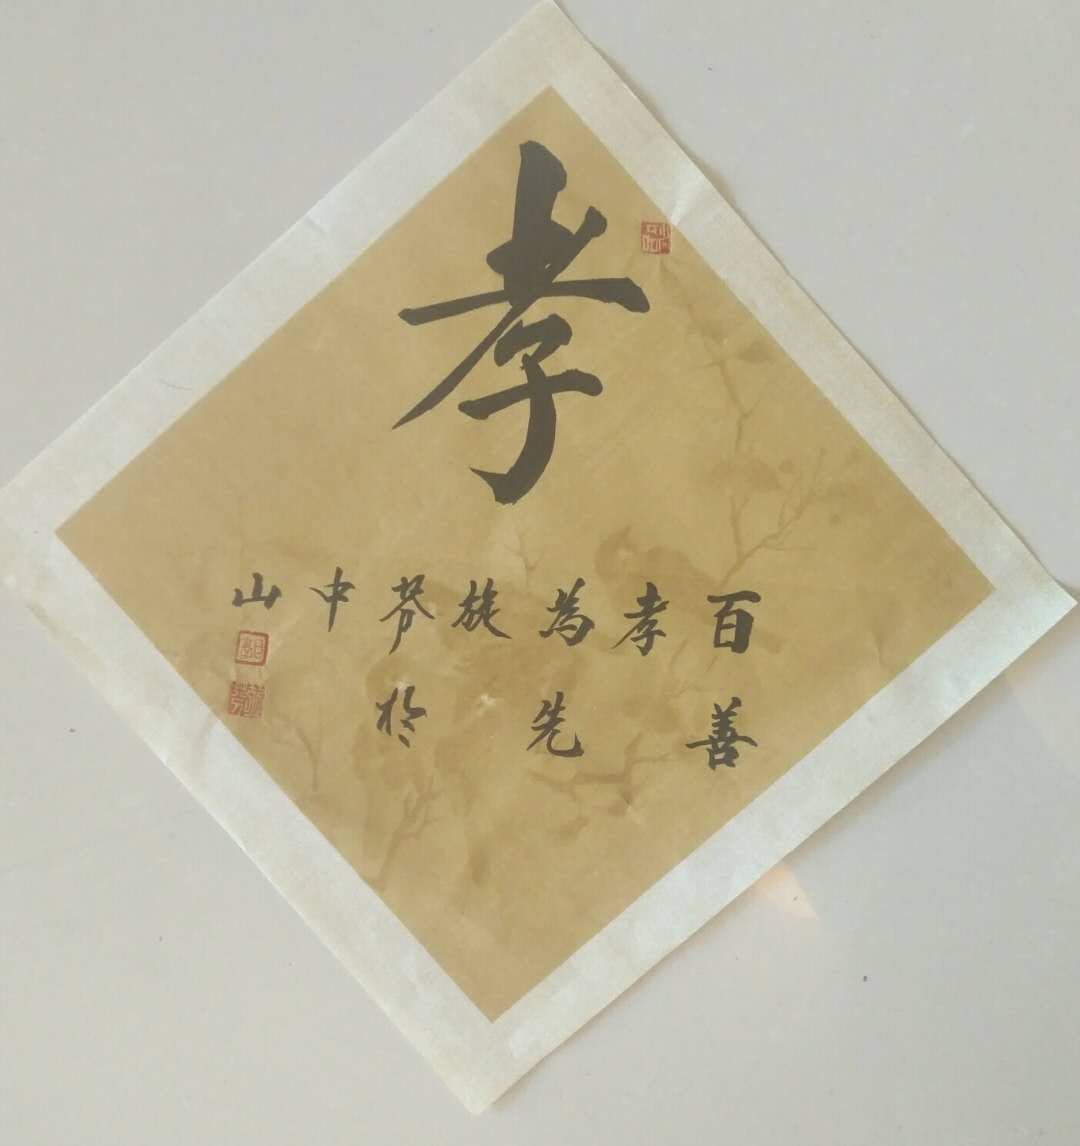 孝
百善
孝
為先
旋
芬於
中
山